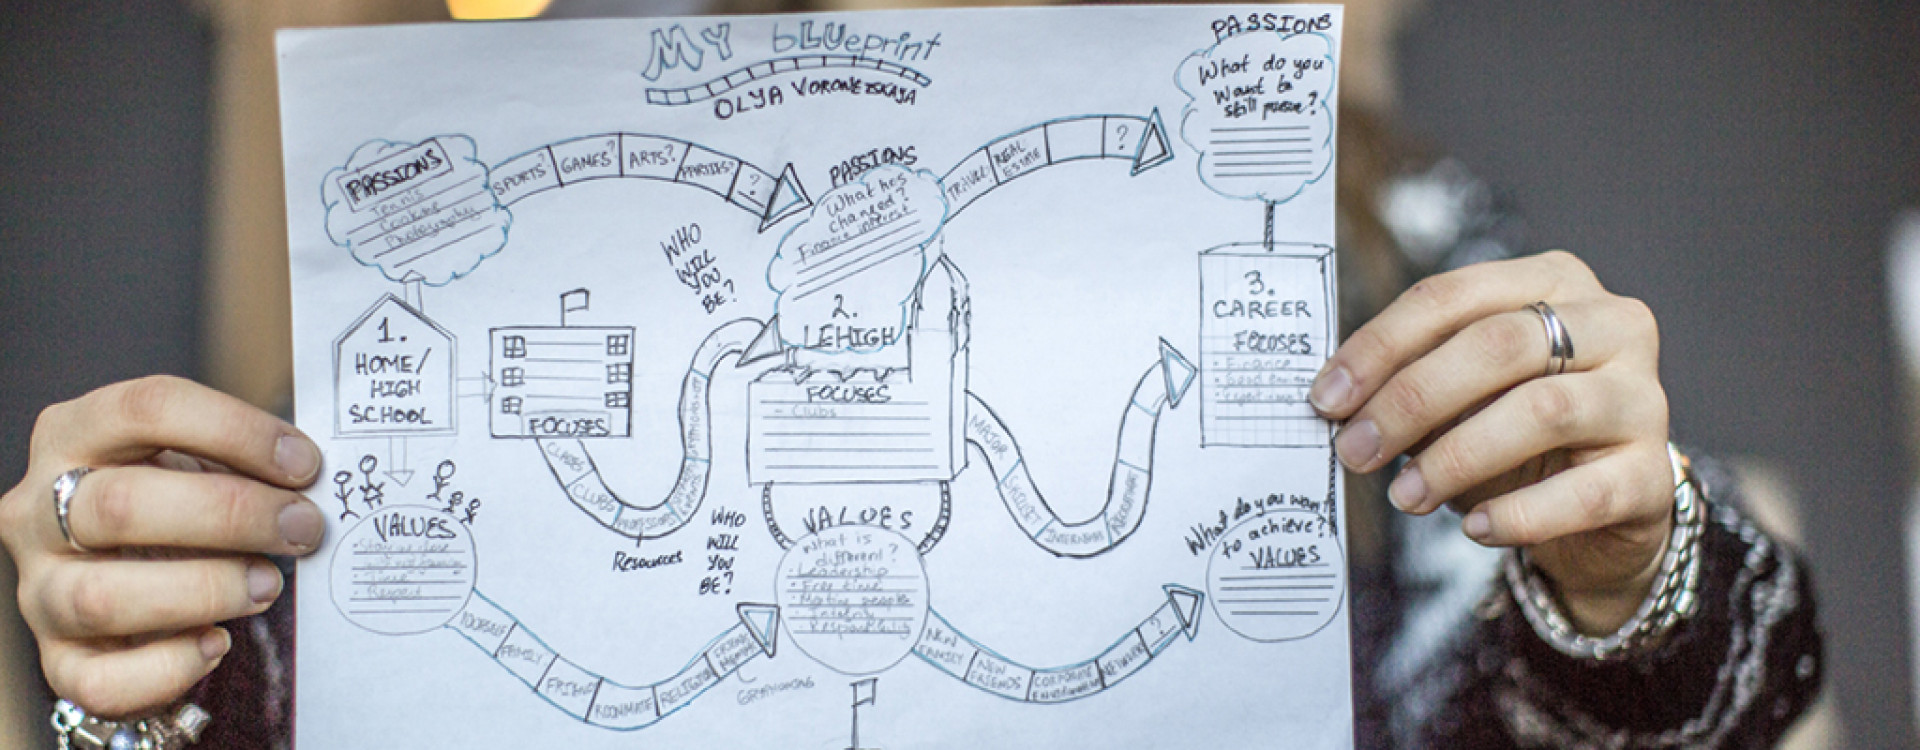 MY bLUeprint
OLYA VORONEZSKAJA
PASSIONS
Tennis
Cooking
Photography
SPORTS?
GAMES?
ARTS?
PARTIES?
?
PASSIONS
What has
changed?
Finance interest
TRAVEL?
REAL
ESTATE
?
PASSIONS
What do you
Want to
still pursue?
1.
HOME/
HIGH
SCHOOL
FOCUSES
CLASSES
CLUBS
PROFESSORS
Resources
WHO
WILL
YOU
BE?
2.
LEHIGH
FOCUSES
- Clubs
MAJOR
RECRUITMENT
3.
CAREER
FOCUSES
• Finance
VALUES
• Stay close
• Time
• Respect
YOURSELF
FAMILY
FRIENDS
ROOMMATE
RELIGION
GRYPHONING
WHO
WILL
YOU
BE?
VALUES
What is
different?
• Leadership
• Free time
• Meeting people
• Responsibility
NEW
FAMILY
NEW
FRIENDS
CORPORATE
ENVIRONMENT
NETWORK
?
What do you want
to achieve?
VALUES